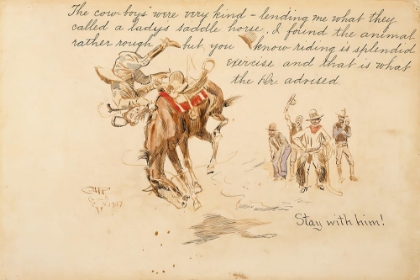 The cow boys were very kind - lending me what they
called a ladys saddle horse. I found the animal
rather rough but you know riding is splendid
exercise and that is what
the Dr advised.
Stay with him!